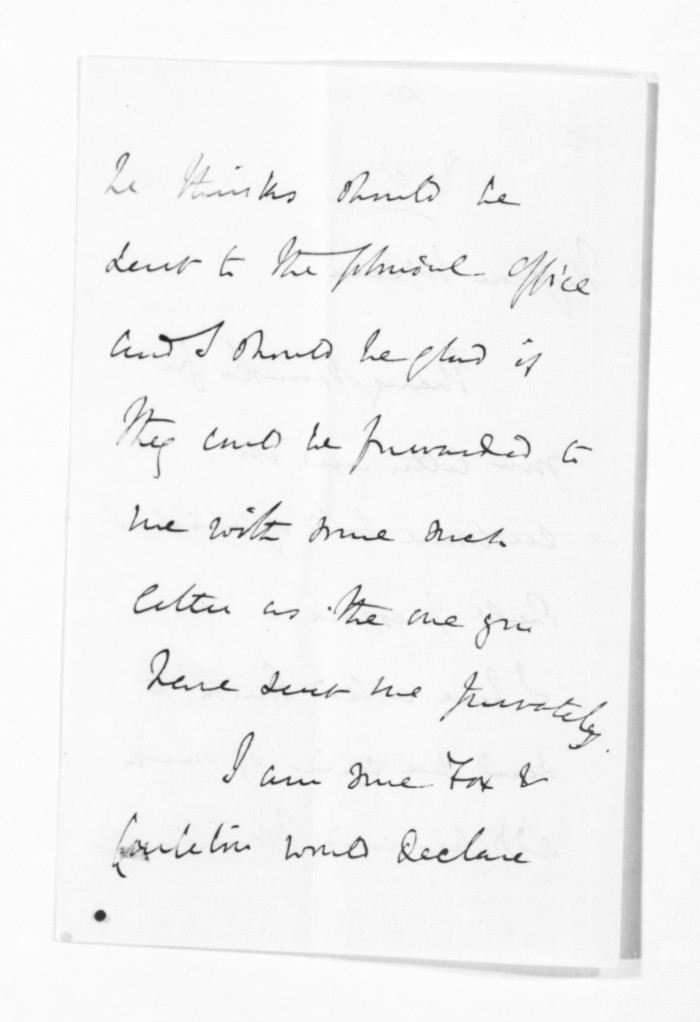 he thinks should be
sent to the Colonial Office
and I should be glad if
they could be forwarded to
me with some such
letter as the one you
have sent me privately.
I am sure Fox &
would declare